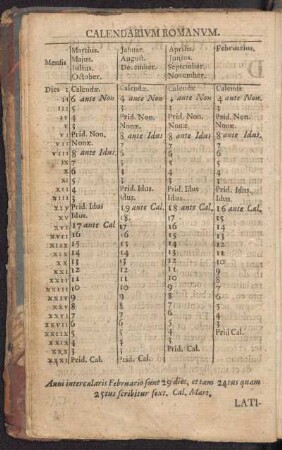 CALENDARIVM ROMANVM.
Mensis Martius. Januar. Aprilis. Februarius.
Majus. August. Junius.
Julius. December. September.
October. November.
Dies I Calendæ. Calendæ. Calendæ. Calendæ
II 6 ante Non 4 ante Non 4 ante Non 4 ante Non.
III 5 3 3 3
IV 4 Prid. Non. Prid. Non. Prid. Non.
V 3 Nonæ. Nonæ. Nonæ.
VI Prid. Non. 8 ante Idus 8 ante Idus 8 ante Idus.
VII Nonæ. 7 7 7
VIII 8 ante Idus 6 6 6
IX 7 5 5 5
X 6 4 4 4
XI 5 3 3 3
XII 4 Prid. Idus. Prid. Idus Prid. Idus.
XIII 3 Idus. Idus. Idus.
XIV Prid. Idus 19 ante Cal. 18 ante Cal. 16 ante Cal.
XV Idus. 18. 17. 15
XVI 17 ante Cal 17 16 14
XVII 16 16 15 13
XVIII 15 15 14 12
XIX 14 14 13 11
XX 13 13 12 10
XXI 12 12 11 9
XXII 11 11 10 8
XXIII 10 10 9 7
XXIV 9 9 8 6
XXV 8 8 7 5
XXVI 7 7 6 4
XXVII 6 6 5 3
XXVIII 5 5 4 Prid Cal.
XXIX 4 4 3
XXX 3 3 Prid. Cal.
XXXI Prid. Cal. Prid. Cal.
Anni intercalaris Februario sunt 29 dies, et tam 24tus quam
25tus scribitur sext. Cal. Mart.
LATI-